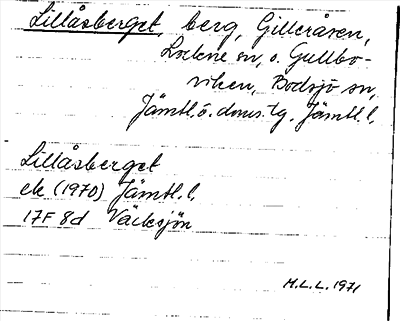 Lillåsberget, berg, Gilleråsen,
Locknе sn, o. Gullbo-
viken, Bodsjö sn,
Jämtl. ö. doms. tg. Jämtl. l.
Lillåsberget
ek (1970) Jämtl. l.
17F 8d Väcksjön
M.L.L. 1971